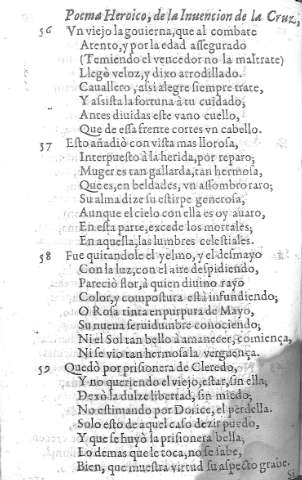 Poema Heroico, de la Inuencion de la Cruz,
56 Vn viejo la gouierna, que al combate
Atento, y por la edad assegurado
(Temiendo el vencedor no la maltrate)
Llegò veloz, y dixo arrodillado.
Cauallero, assi alegre siempre trate,
Y assista la fortuna à tu cuidado,
Antes diuidas este vano cuello,
Que de essa frente cortes vn cabello.
57 Esto añadiò con vista mas llorosa,
Interpuesto à la herida, por reparo;
Muger es tan gallarda, tan hermosa,
Que es, en beldades, vn assombro raro;
Su alma dize su estirpe generosa,
Aunque el cielo con ella es oy auaro,
En esta parte, excede los mortales;
En aquella, las lumbres celestiales.
58 Fue quitandole el yelmo, y el desmayo
Con la luz, con el aire despidiendo,
Pareciò flor, à quien diuino rayo
Color, y compostura està infundiendo;
O Rosa tinta en purpura de Mayo,
Su nueua seruidumbre conociendo;
Ni el Sol tan bello à amanecer, comiença,
Ni se vio tan hermosa la verguença.
59 Quedò por prisionera de Cleredo,
Y no queriendo el viejo, estar, sin ella,
Dexò la dulze libertad, sin miedo,
No estimando por Dorice, el perdella.
Solo esto de aquel caso dezir puedo,
Y que se huyò la prisionera bella,
Lo demas que le toca, no se sabe,
Bien, que muestra virtud su aspecto graue.